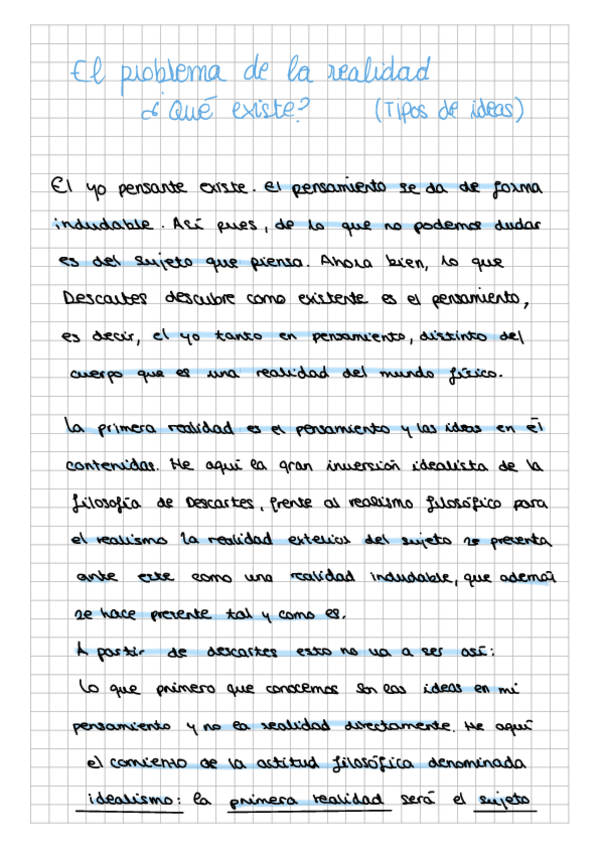 El problema de la realidad
¿Qué existe? (Tipos de ideas)
El yo pensante existe. El pensamiento se da de forma
indudable. Así pues, de lo que no podemos dudar
es del sujeto que piensa. Ahora bien, lo que
Descartes descubre como existente es el pensamiento,
es decir, el yo tanto en pensamiento, distinto del
cuerpo que es una realidad del mundo físico.
La primera realidad es el pensamiento y las ideas en él
contenidas. He aquí la gran inversión idealista de la
filosofía de Descartes, frente al realismo filosófico para
el realismo la realidad exterior del sujeto se presenta
ante este como una realidad indudable, que además
se hace presente tal y como es.
A partir de descartes esto no va a ser así:
Lo que primero que conocemos son las ideas en mi
pensamiento y no la realidad directamente. He aquí
el comienzo de la actitud filosófica denominada
idealismo: la primera realidad será el sujeto